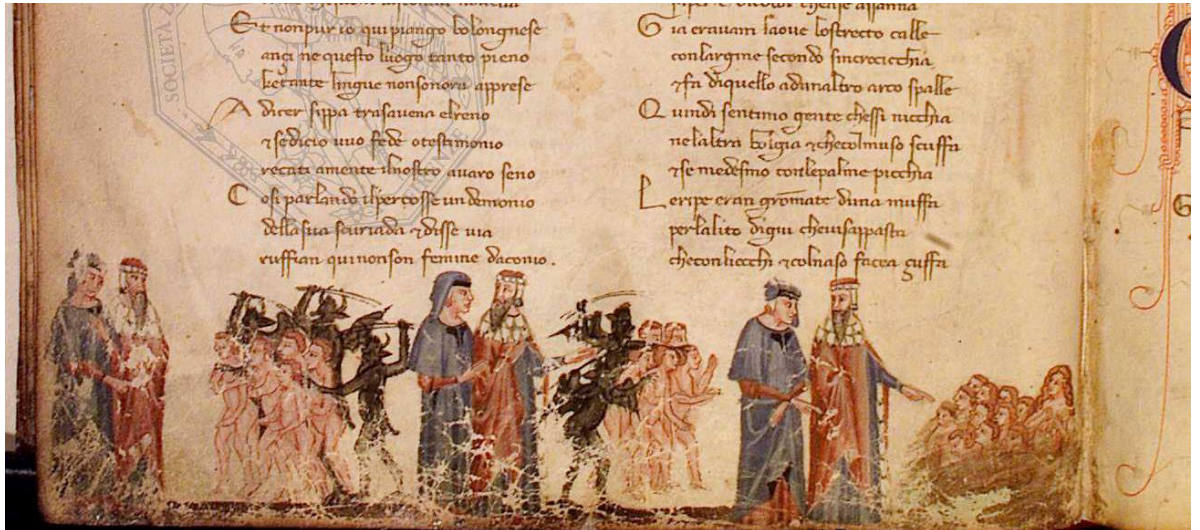 Et non pur io qui piango bolongnese
ançi ne questo luogo tanto pieno
ke tante lingue non sonora apprese
A dicer sippa tra savena el reno
& se di cio vuo fede o testimonio
recati a mente il nostro avaro seno
Cosi parlando il percosse un demonio
della sua scuriada & disse via
ruffian qui non son femine da conio.
Gia eravam laove lo strecto calle
con largine secondo sincrocicchia
& fa di quello ad un altro arco spalle
Quindi sentimo gente che ssi nicchia
ne laltra bolgia & che col muso scuffa
& se medesmo con le palme picchia
Le ripe eran grōmate duna muffa
per lalito di giu che vi sappasta
che con li occhi & col naso facea çuffa
SOCIETA D